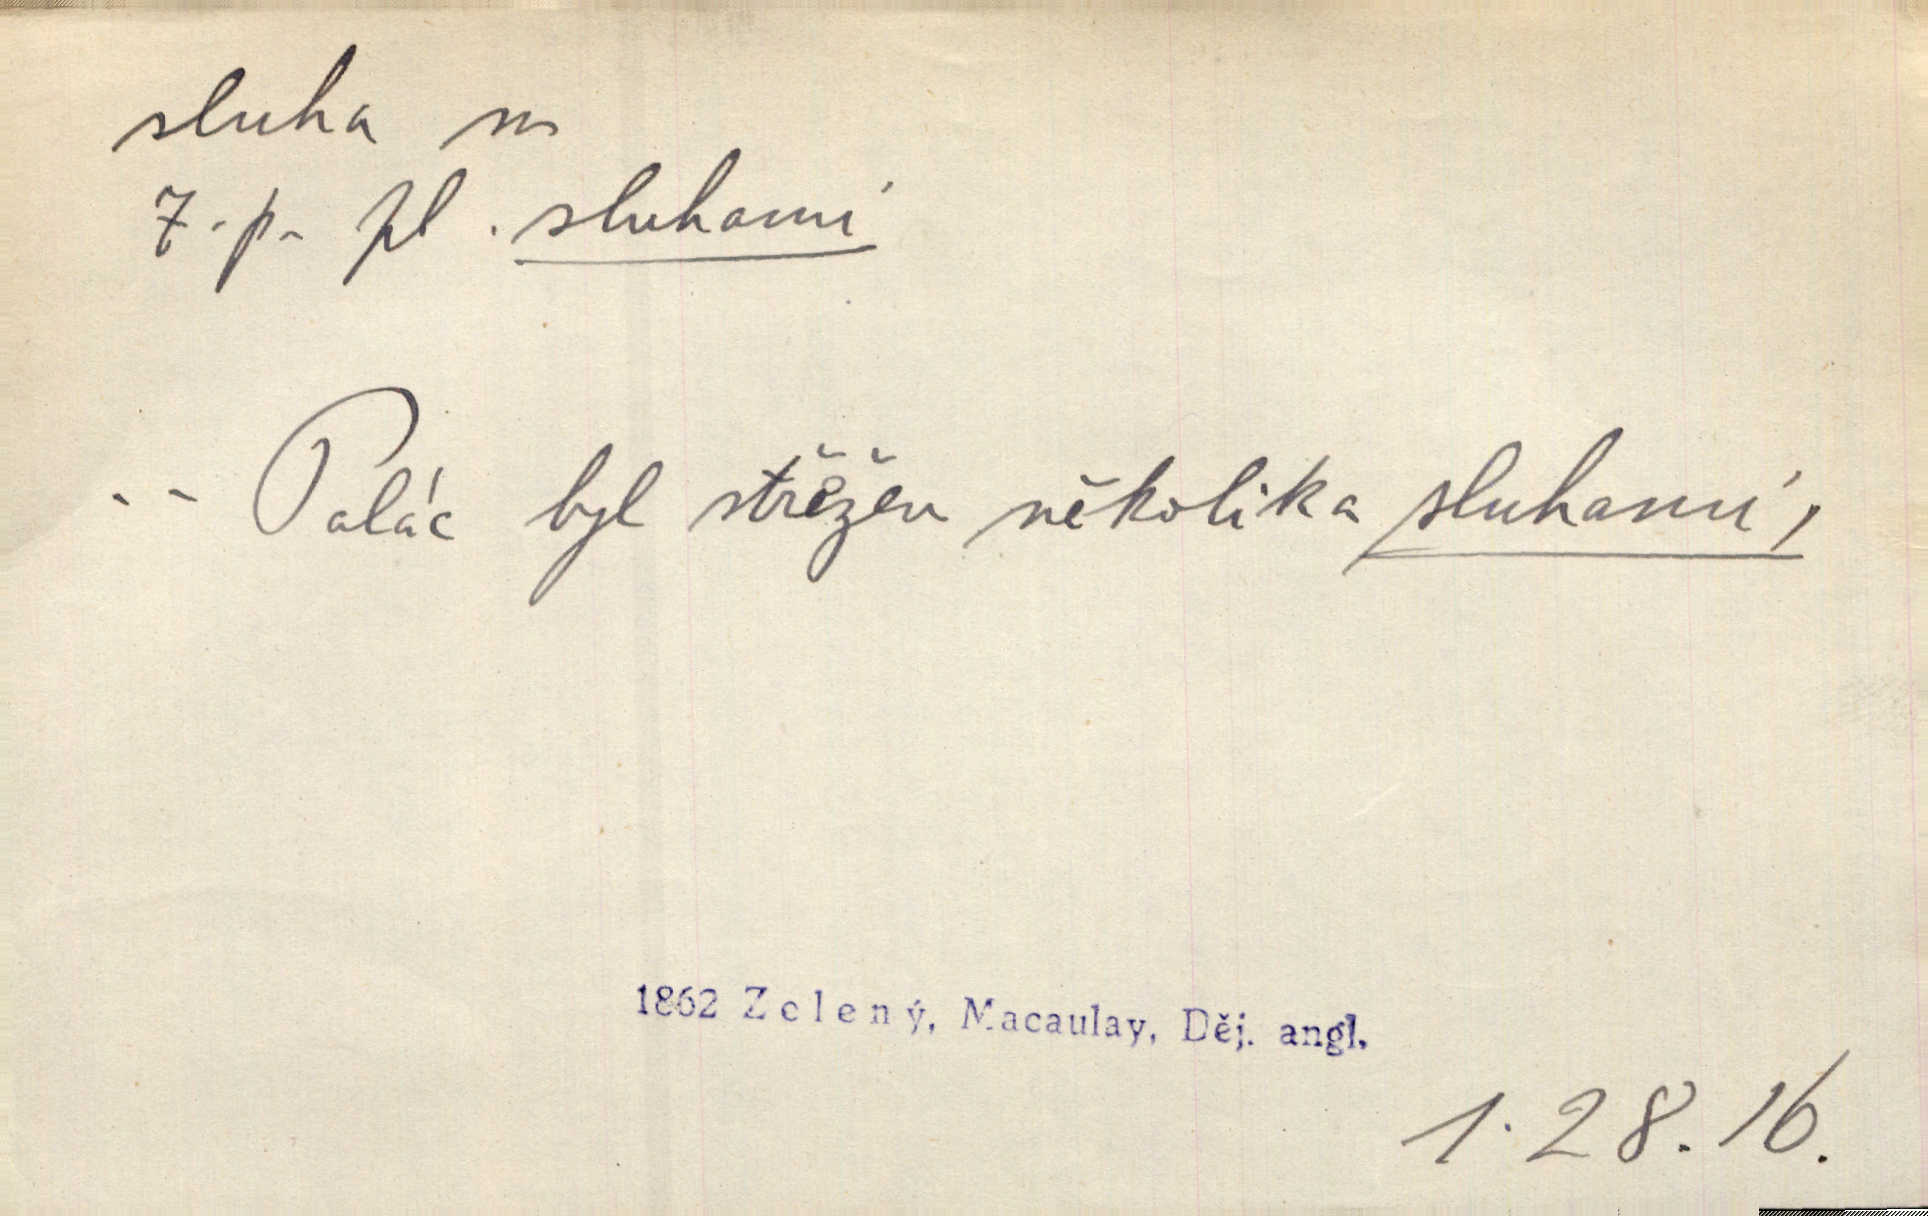 sluha m
7. p. pl. sluhami
.. Palác byl střěžen několika sluhami,
1862 Zelený, Macaulay, Děj. angl.
1. 28. 16.